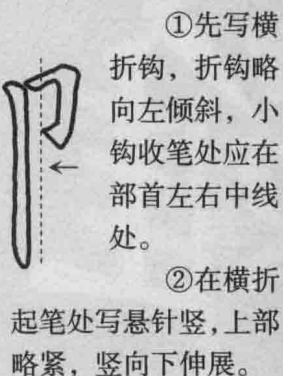 ①先写横
折钩，折钩略
向左倾斜，小
钩收笔处应在
部首左右中线
处。
②在横折
起笔处写悬针竖，上部
略紧，竖向下伸展。